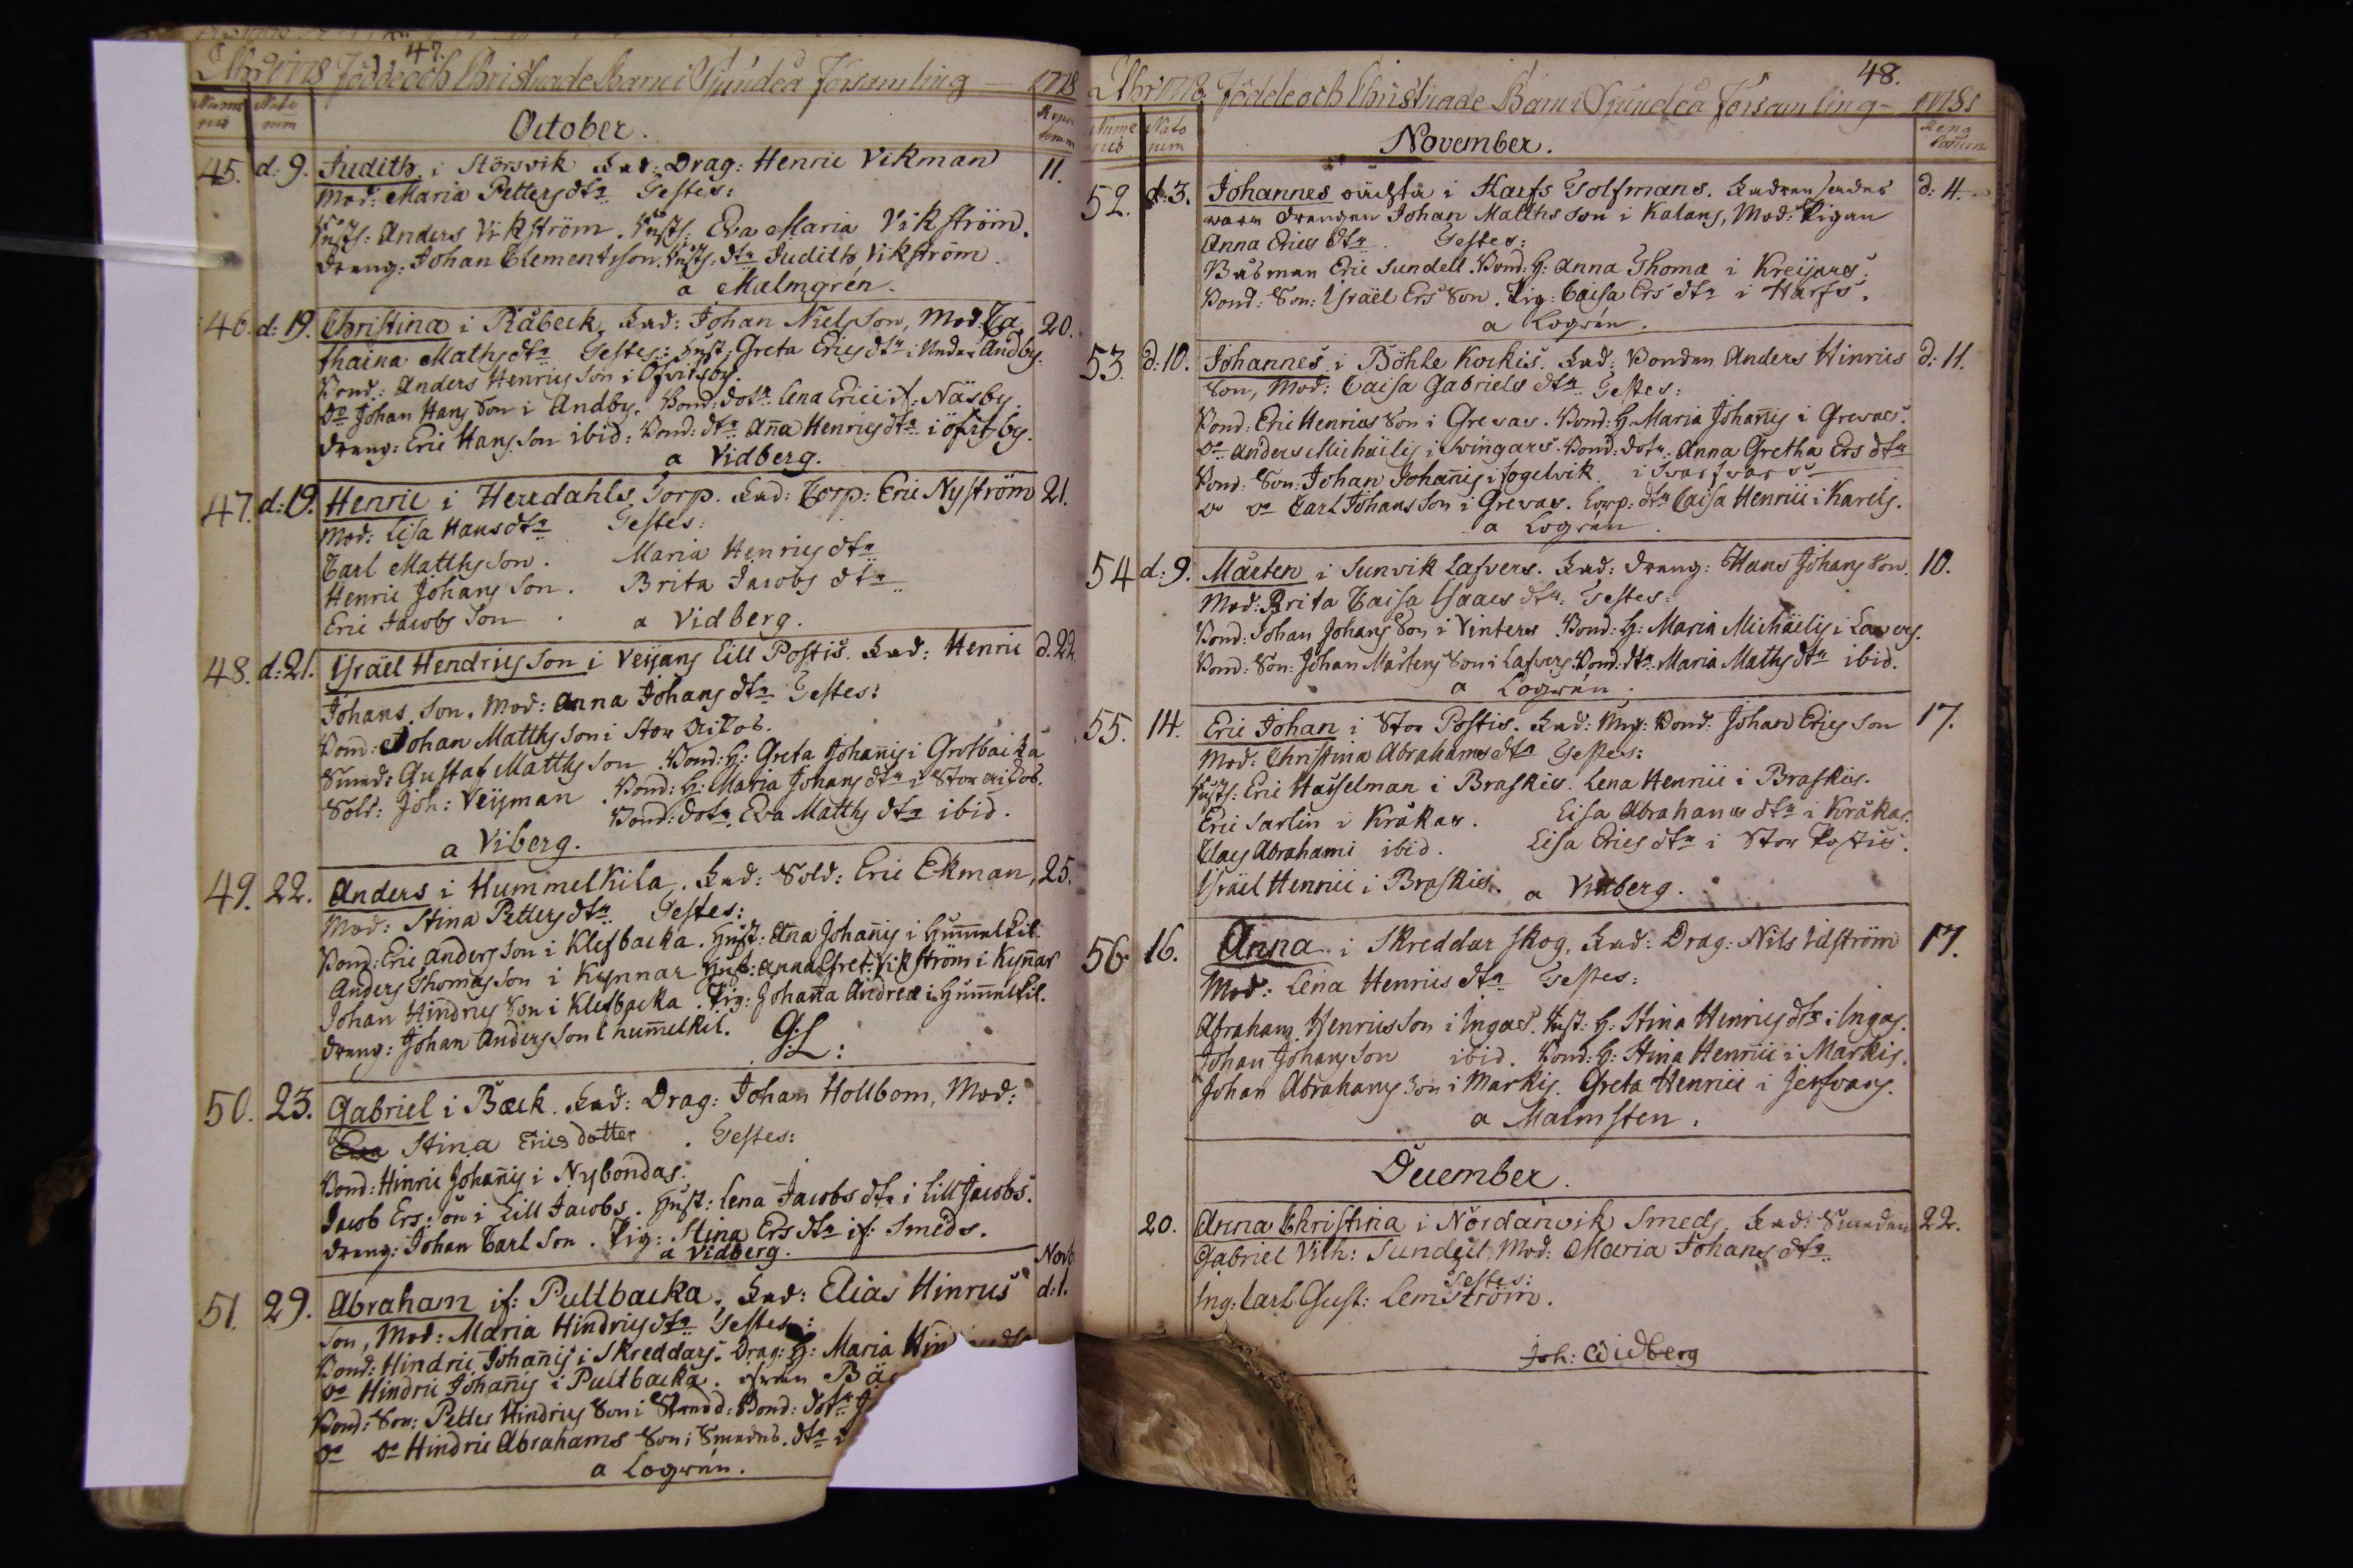 47.
1778 Födde och Christnade Barn i Sjundeå Församling — 1778
October.
45. d: 9. Judith i Störsvik Fad: Drag: Henric Vikman 11.
Mod: Maria Petters dtr Testes:
Anders Vikström. Eva Maria Vikström.
Dreng: Johan Clementsson. dtr Judith Vikström.
a Malmgrén.
46. d: 19. Christina i Råbeck. Fad: Johan Nielsson, Mod: Ca 20.
tharina Mathsdtr Testes: Hust: Greta Ericsdtr i Andby.
Bond: Anders Henricsson i Öfvitsby.
Do Johan Hansson i Andby. Bond: dotr Lena Erici if: Näsby.
Dreng: Eric Hansson ibid: Bond: dtr Aña Henricsdtr i öfitsby.
a Vidberg.
47. d: 19. Henric i Herrdahls Torp. Fad: Torp: Eric Nyström 21.
Mod: Lisa Hansdtr Testes:
Carl Matthsson. Maria Henricsdtr
Henric Johansson. Brita Jacobsdtr
Eric Jacobsson a Vidberg.
48. d: 21. Israël Hendricsson i Veijans Lill Postis. Fad: Henric d. 22
Johans Son. Mod: Anna Johansdtr Testes:
Bond: Johan Matthsson i Stor
Gustaf Matthsson. Bond: H: Greta Johañis i Grotbacka
Sold: Joh: Veijman. Bond: H: Maria Johansdtr i Stor
Bond: dotr Eva Matthsdtr ibid.
a Viberg.
49. 22. Anders i Hummelkila. Fad: Sold: Eric Ekman, 25.
Mod: Stina Pettersdtr Testes:
Bond: Eric Andersson i Klefbacka. Hust: Aña Johañis i Hum̄elkil.
Anders Thomasson i Kynnar Hust: Anna Vikström i Kyñar
Johan Hindricsson i Klefbacka. Pig: Johaña Andreæ i Hum̄elkil.
Dreng: Johan Andersson i hum̄elkil. G:L:
50. 23. Gabriel i Bæck. Fad: Drag: Johan Hollbom, Mod:
Stina Ericsdotter. Testes:
Bond: Hinric Johañis i Nybondas.
Jacob Ers: Son i Lill Jacobs. Hust: Lena Jacobs dtr i Lill Jacobs.
Dreng: Johan Carl Son. Pig: Stina Ers dtr if: Smeds.
a Vidberg.
51. 29. Abraham if: Pullbacka. Fad: Elias Hinrics Novb d: 1.
Son, Mod: Maria Hindricsdtr Testes:
Bond: Hindric Johañis i Skreddars. Drag: H: Maria
Do Hindric Johañis i Pultbacka.
Bond: Son: Petter Hindrics Son i Bond: dotr
Do Do Hindric Abrahams Son i Smedes. dtr i
a Logrén.
48.
1778 Födde och Christnade Barn i Sjundeå Församling — 1778
November.
52. d: 3. Johannes oäckta i Harfs Tolfmans. d: 4.
Drengen Johan Matthsson i Kalans, Mod: Pigan
Anna Erics dtr. Testes:
Eric Sundell. Bond: H: Anna Thomæ i Kreijars.
Bond: Son: Israël Ers Son. Pig: Caisa Ers dtr i Harfs.
a Logrén.
53. d: 10. Johannes i Böhle Kockis. Fad: Bonden Anders Hinrics d: 11.
Son, Mod: Caisa Gabriels dtr Testes:
Bond: Eric Henrics Son i Grevas. Bond: H: Maria Johañis i Grevas.
Do Anders Michaelis i Svingars. Bond: dotr Anna Gretha Ers dtr
Bond: Son: Johan Johañis i Fogelvik i Svartvar
Do Do Carl Johans Son i Grevas. Torp: dtr Caisa Henrici i Karels.
a Logrén.
54 d: 9. Mårten i Sunvik Lafvers. Fad: Dreng: Hans Johans Son. 10.
Mod: Brita Caisa Isaacs dtr: Testes:
Bond: Johan Johans Son i Vinters Bond: H: Maria Michaëlis i
Bond: Son: Johan Mårtens Son i Lafvers. Bond: dtr Maria Maths dtr ibid.
a Logrén.
55. 14. Eric Johan i Stor Postis. Fad: Bond: Johan Erics Son 17.
Mod: Christina Abrahamsdtr Testes:
Eric Hasselman i Braskis. Lena Henrici i Braskis.
Eric Sarlin i Kråkas. Lisa Abrahams dtr i Kråkas.
Claes Abrahami ibid. Lisa Erics dtr i Stor Postis.
Israël Henrici i Braskis. a Vidberg.
56. 16. Anna i Skreddar skog. Fad: Drag: Nils Idström 17.
Mod: Lena Henrics dtr Testes:
Abraham Henricsson i Ingas. Hust: H: Stina Henrics dtr i Ingas.
Johan Johansson ibid. Bond: H: Stina Henrici i Markis.
Johan Abrahams Son i Markis. Greta Henrici i Jerfvans.
a Malmsten.
December.
20. Anna Christina i Nordanvik Smeds. Fad: Smeden 22.
Gabriel Vilh: Sundell Mod: Maria Johans dtr
Testes:
Ing: Carl Gust: Lemström.
Joh: Widberg